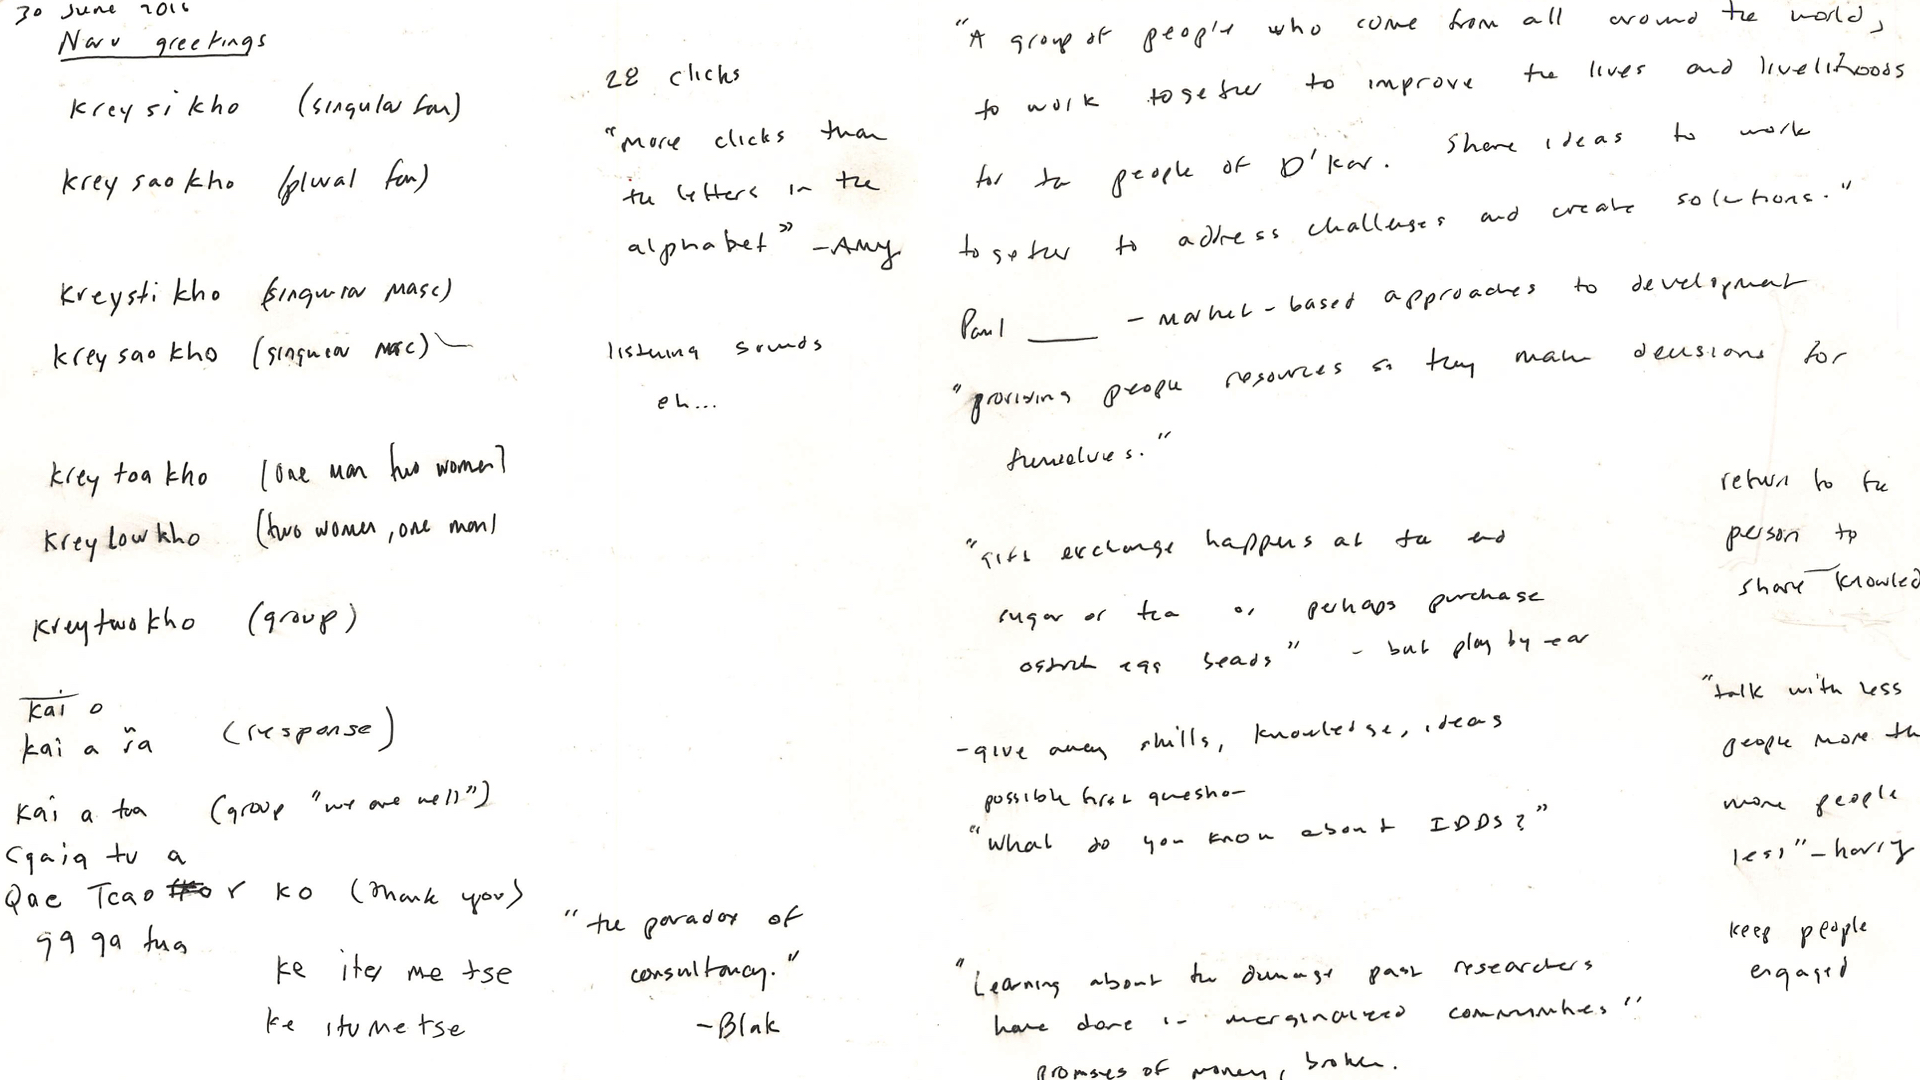 30 June 2016
Naro greetings
Krey si kho (singular fem)
Krey sao kho (plural fem)
Kreysti kho (singular masc)
Krey sao kho (singular masc)
Krey toa kho (one man two women)
Krey low kho (two women, one man)
Kreytwo kho (group)
kai o
kai a ra (response)
Kai a toa (group "we are well")
Cqaiq tu a
Qae Tcao r ko (thank you)
qa tua
ke itex me tse
ke itu me tse
28 clicks
"More clicks than
the letters in the
alphabet" -Amy
listening sounds
eh...
"the paradox of
consultancy."
-Blak
"A group of people who come from all around the world,
to work together to improve the lives and livelihoods
for the people of D'kar. Share ideas to work
together to address challenges and create solutions."
Paul ____ - market-based approaches to development
"providing people resources so they make decisions for
themselves."
"gift exchange happens at the end
sugar or tea or perhaps purchase
ostrich egg beads" - but play by ear
-give away skills, knowledge, ideas
possible first question
"What do you know about IDDS?"
"Learning about the damage past researchers
have done in marginalized communities"
promises of money, broken.
return to the
person to
share knowled
"talk with less
people more th
more people
less" - harry
keep people
engaged